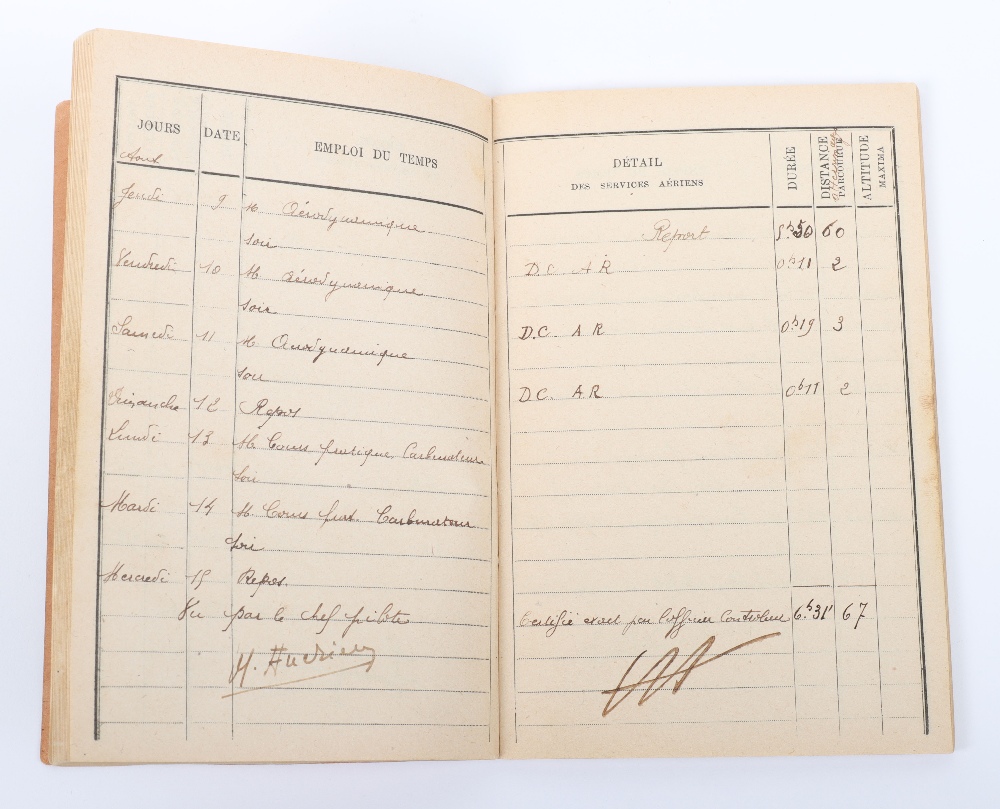 JOURS DATE EMPLOI DU TEMPS
Aout
Jeudi 9 M Aérodynamique
soir
Vendredi 10 M Aérodynamique
soir
Samedi 11 M Aérodynamique
soir
Dimanche 12 Repos
Lundi 13 M Cours pratique Carburateur
soir
Mardi 14 M. Cours prat. Carburateur
soir
Mercredi 15 Repos
Vu par le chef pilote
DÉTAIL DES SERVICES AÉRIENS DURÉE DISTANCE PARCOURUE ALTITUDE MAXIMA
atterrissages
Report 5h50 60
D.C. A R 0h11 2
D.C. A R 0h19 3
D.C. A R 0h11 2
Certifié exact par l'officier Controleur 6h31' 67